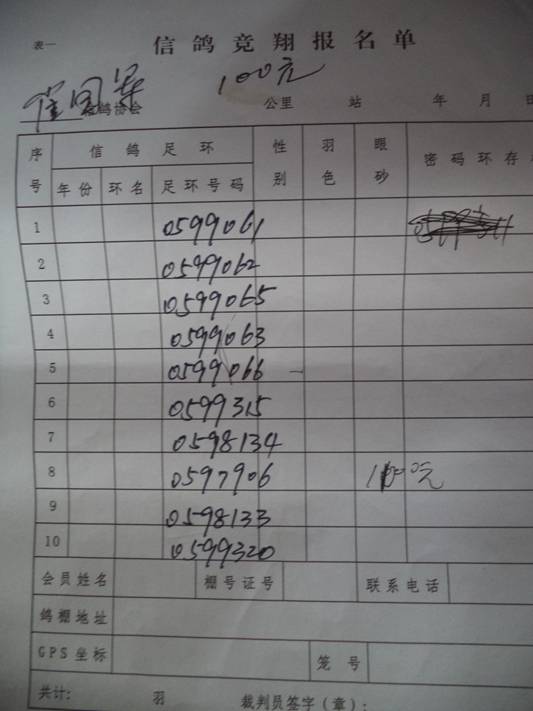 表一
信鸽竞翔报名单
崔国军 100元
信鸽协会 公里 站 年 月 日
序号 信鸽足环 性别 羽色 眼砂 密码环存
年份 环名 足环号码
1 0599061
2 0599062
3 0599065
4 0599063
5 0599066
6 0599315
7 0598134
8 0597906 100元
9 0598133
10 0599320
会员姓名 棚号证号 联系电话
鸽棚地址
GPS坐标 笼号
共计: 羽 裁判员签字(章):